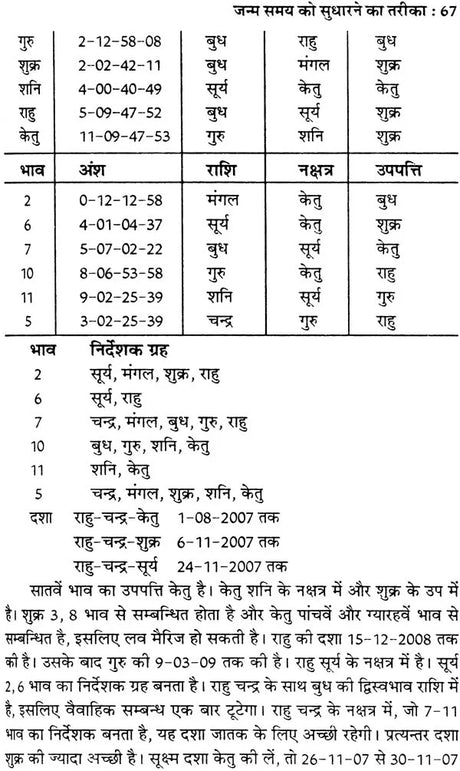 जन्म समय को सुधारने का तरीका : 67
गुरु 2-12-58-08 बुध राहु बुध
शुक्र 2-02-42-11 बुध मंगल शुक्र
शनि 4-00-40-49 सूर्य केतु केतु
राहु 5-09-47-52 बुध सूर्य शुक्र
केतु 11-09-47-53 गुरु शनि शुक्र
भाव अंश राशि नक्षत्र उपपत्ति
2 0-12-12-58 मंगल केतु बुध
6 4-01-04-37 सूर्य केतु शुक्र
7 5-07-02-22 बुध सूर्य केतु
10 8-06-53-58 गुरु केतु राहु
11 9-02-25-39 शनि सूर्य गुरु
5 3-02-25-39 चन्द्र गुरु राहु
भाव निर्देशक ग्रह
2 सूर्य, मंगल, शुक्र, राहु
6 सूर्य, राहु
7 चन्द्र, मंगल, बुध, गुरु, राहु
10 बुध, गुरु, शनि, केतु
11 शनि, केतु
5 चन्द्र, मंगल, शुक्र, शनि, केतु
दशा राहु-चन्द्र-केतु 1-08-2007 तक
राहु-चन्द्र-शुक्र 6-11-2007 तक
राहु-चन्द्र-सूर्य 24-11-2007 तक
सातवें भाव का उपपत्ति केतु है। केतु शनि के नक्षत्र में और शुक्र के उप में
है। शुक्र 3, 8 भाव से सम्बन्धित होता है और केतु पांचवें और ग्यारहवें भाव से
सम्बन्धित है, इसलिए लव मैरिज हो सकती है। राहु की दशा 15-12-2008 तक
की है। उसके बाद गुरु की 9-03-09 तक की है। राहु सूर्य के नक्षत्र में है। सूर्य
2,6 भाव का निर्देशक ग्रह बनता है। राहु चन्द्र के साथ बुध की द्विस्वभाव राशि में
है, इसलिए वैवाहिक सम्बन्ध एक बार टूटेगा। राहु चन्द्र के नक्षत्र में, जो 7-11
भाव का निर्देशक बनता है, यह दशा जातक के लिए अच्छी रहेगी। प्रत्यन्तर दशा
शुक्र की ज्यादा अच्छी है। सूक्ष्म दशा केतु की लें, तो 26-11-07 से 30-11-07